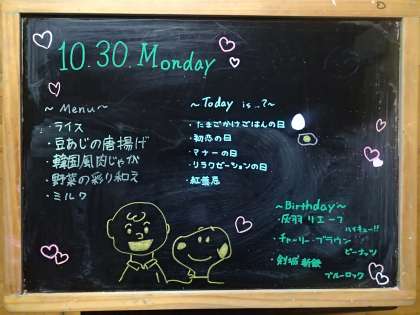 10.30.Monday
~Menu~
・ライス
・豆あじの唐揚げ
・韓国風肉じゃが
・野菜の彩り和え
・ミルク
~Today is..?~
・たまごかけごはんの日
・初恋の日
・マナーの日
・リラクゼーションの日
・紅葉忌
~Birthday~
・灰羽 リエーフ
ハイキュー!!
・チャーリー・ブラウン
ピーナッツ
・剣城 斬鉄
ブルーロック